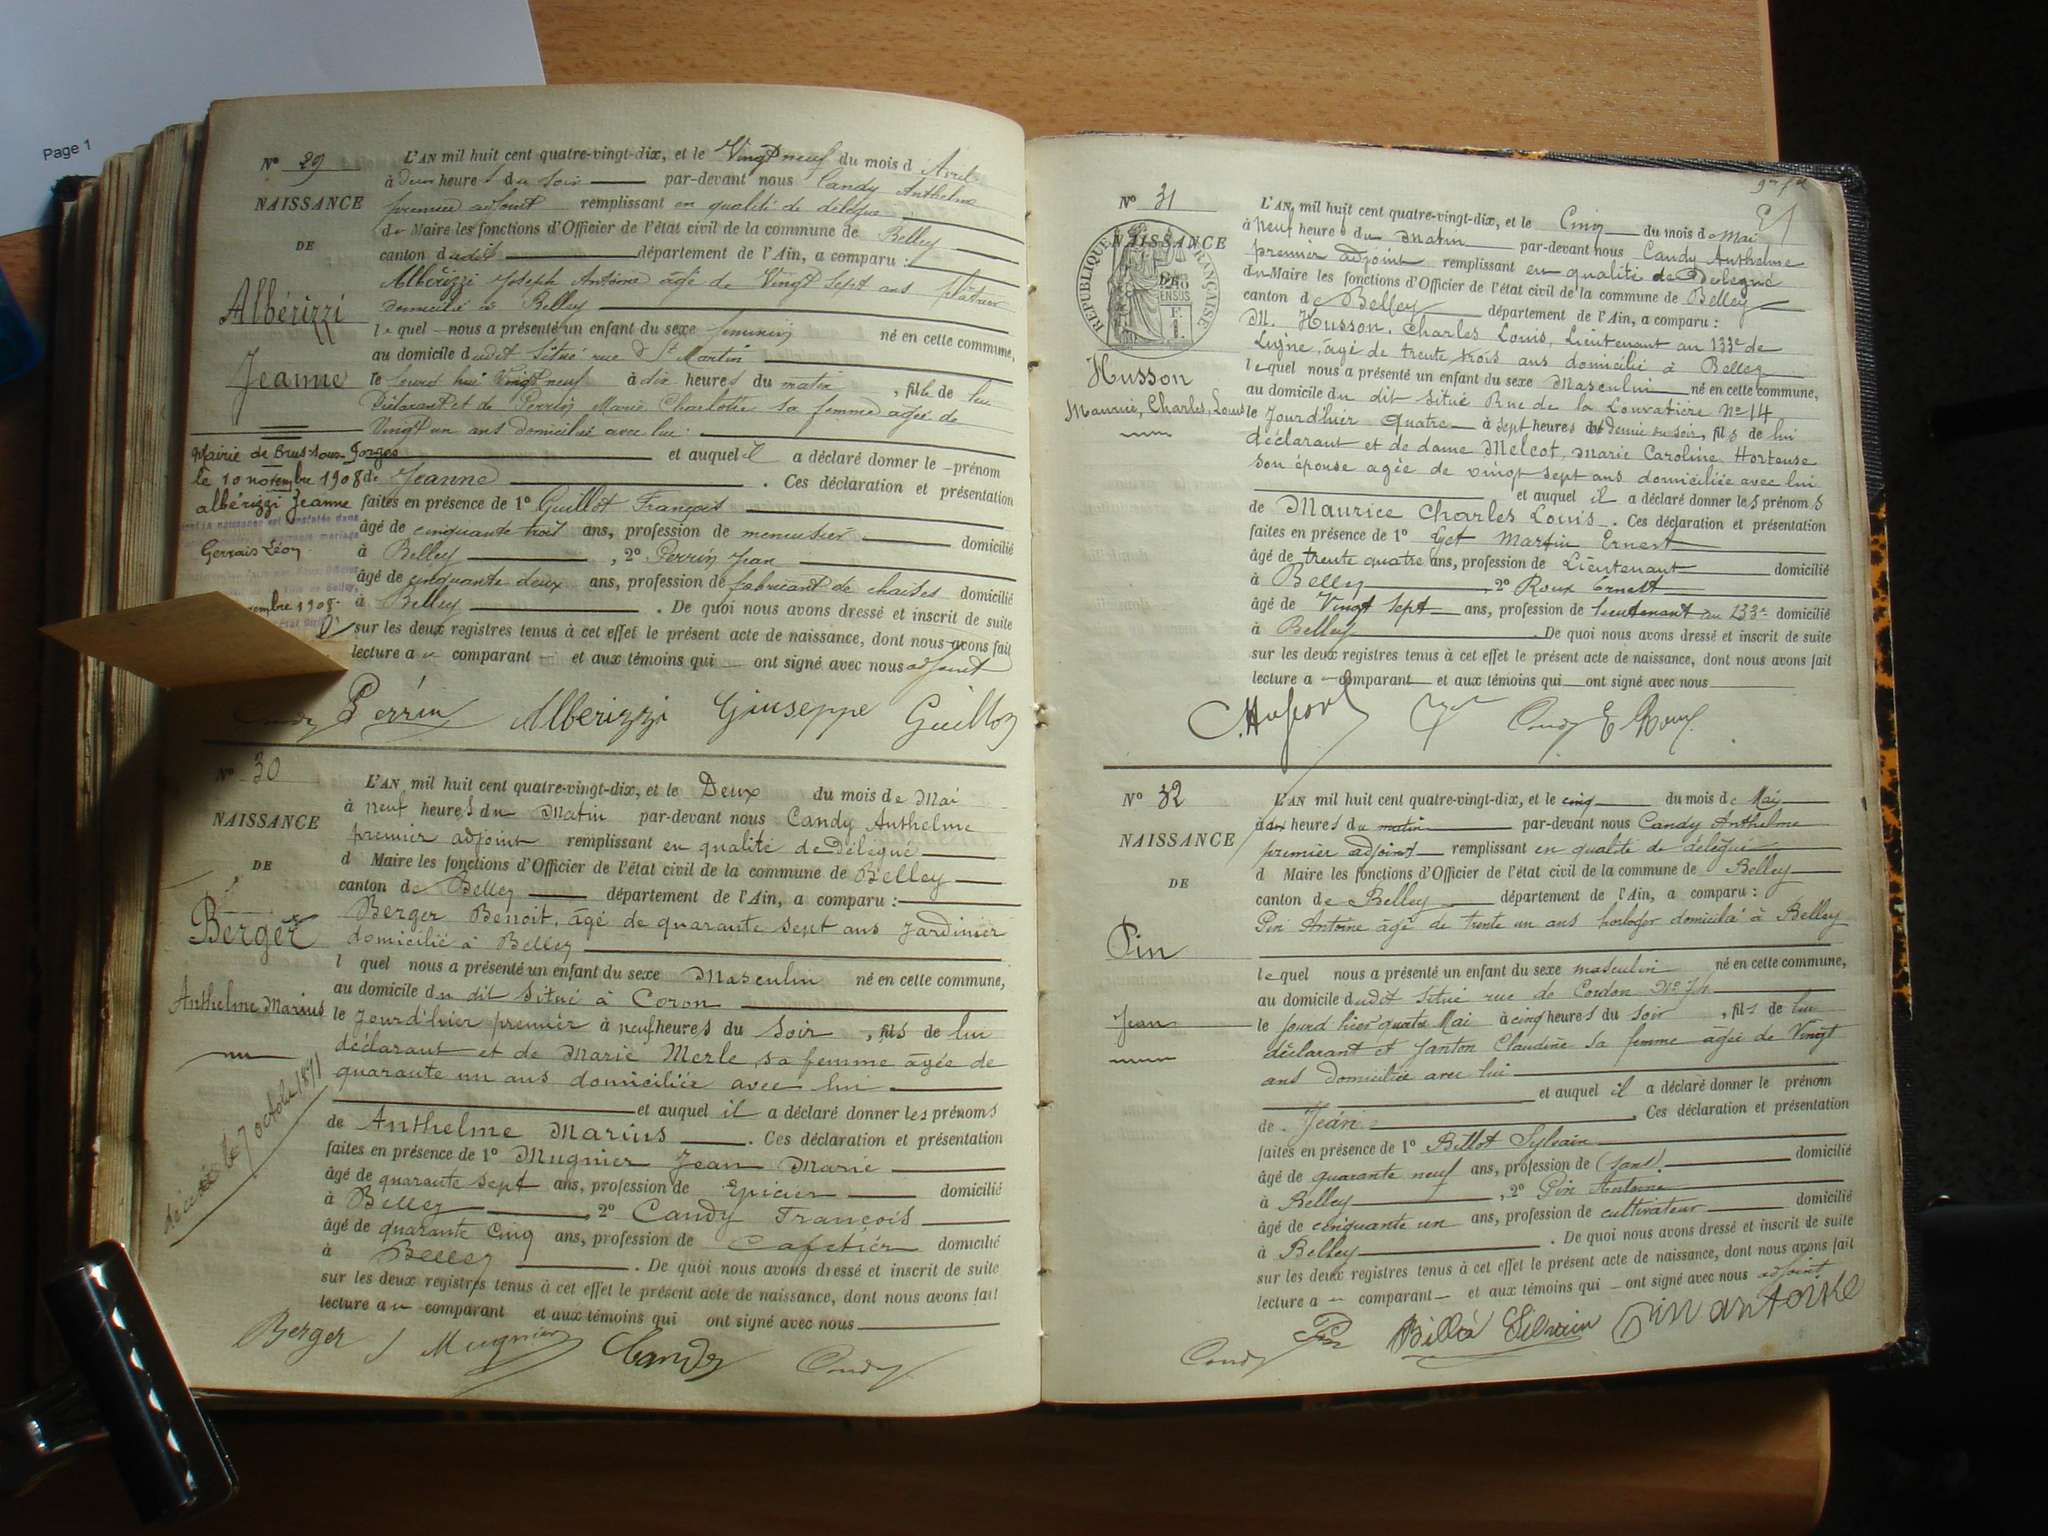 Page 1
N° 29
NAISSANCE
DE
Albérizzi
Jeanne
L'AN mil huit cent quatre-vingt-dix, et le Vingt neuf du mois d'Avril
à deux heures du soir par-devant nous Candy Anthelme
premier adjoint remplissant en qualité de délégué
du Maire les fonctions d'Officier de l'état civil de la commune de Belley
canton dudit département de l'Ain, a comparu :
Albérizzi Joseph Antoine âgé de Vingt sept ans plâtrier
domicilié à Belley
lequel nous a présenté un enfant du sexe féminin né en cette commune,
au domicile dudit situé rue St Martin
le jourd'hui Vingt neuf à dix heures du matin, fille de lui
Déclarant et de Perrin Marie Charlotte sa femme agée de
Vingt un ans domiciliée avec lui
et auquel il a déclaré donner le prénom
de Jeanne. Ces déclaration et présentation
faites en présence de 1° Guillot François
âgé de cinquante trois ans, profession de menuisier domicilié
à Belley, 2° Perrin Jean
âgé de cinquante deux ans, profession de fabricant de chaises domicilié
à Belley. De quoi nous avons dressé et inscrit de suite
sur les deux registres tenus à cet effet le présent acte de naissance, dont nous avons fait
lecture au comparant et aux témoins qui ont signé avec nous adjoint
Mairie de Brus-sous-Forges
le 10 novembre 1908
albérizzi Jeanne
Gervais Léon
1908
Candy Perrin Alberizzi Giuseppe Guillot
N° 30
NAISSANCE
DE
Berger
Anthelme Marius
L'AN mil huit cent quatre-vingt-dix, et le Deux du mois de Mai
à neuf heures du Matin par-devant nous Candy Anthelme
premier adjoint remplissant en qualité de Délégué
d Maire les fonctions d'Officier de l'état civil de la commune de Belley
canton de Belley département de l'Ain, a comparu :
Berger Benoit, âgé de quarante sept ans Jardinier
domicilié à Belley
l quel nous a présenté un enfant du sexe Masculin né en cette commune,
au domicile du dit situé à Coron
le Jourd'hier premier à neuf heures du soir, fils de lui
déclarant et de Marie Merle, sa femme agée de
quarante un ans domiciliée avec lui
et auquel il a déclaré donner les prénoms
de Anthelme Marius. Ces déclaration et présentation
faites en présence de 1° Mugnier Jean Marie
âgé de quarante sept ans, profession de Epicier domicilié
à Belley, 2° Candy François
âgé de quarante cinq ans, profession de Cafetier domicilié
à Belley. De quoi nous avons dressé et inscrit de suite
sur les deux registres tenus à cet effet le présent acte de naissance, dont nous avons fait
lecture au comparant et aux témoins qui ont signé avec nous
Berger J Mugnier Candy Candy
N° 31
NAISSANCE
RÉPUBLIQUE FRANÇAISE
Husson
Maurice, Charles, Louis
L'AN mil huit cent quatre-vingt-dix, et le Cinq du mois de Mai
à neuf heures du Matin par-devant nous Candy Anthelme
premier adjoint remplissant en qualité de Délégué
du Maire les fonctions d'Officier de l'état civil de la commune de Belley
canton de Belley département de l'Ain, a comparu :
M. Husson, Charles Louis, Lieutenant au 133e de
Ligne, âgé de trente trois ans domicilié à Belley
lequel nous a présenté un enfant du sexe Masculin né en cette commune,
au domicile du dit situé Rue de la Louvatière N° 14
le Jourd'hier Quatre à sept heures et demie du soir, fils de lui
déclarant et de dame Melcot, Marie Caroline Hortense
son épouse agée de vingt sept ans domiciliée avec lui
et auquel il a déclaré donner les prénoms
de Maurice Charles Louis. Ces déclaration et présentation
faites en présence de 1° Get Martin Ernest
âgé de trente quatre ans, profession de Lieutenant domicilié
à Belley, 2° Roux Ernest
âgé de Vingt sept ans, profession de lieutenant au 133e domicilié
à Belley. De quoi nous avons dressé et inscrit de suite
sur les deux registres tenus à cet effet le présent acte de naissance, dont nous avons fait
lecture a comparant et aux témoins qui ont signé avec nous
C. Husson Candy E Roux
N° 32
NAISSANCE
DE
Pin
Jean
L'AN mil huit cent quatre-vingt-dix, et le cinq du mois de Mai
à dix heures du matin par-devant nous Candy Anthelme
premier adjoint remplissant en qualité de délégué
d Maire les fonctions d'Officier de l'état civil de la commune de Belley
canton de Belley département de l'Ain, a comparu :
Pin Antoine âgé de trente un ans horloger domicilié à Belley
lequel nous a présenté un enfant du sexe masculin né en cette commune,
au domicile dudit situé rue de Cordon
le jourd'hier quatre Mai à cinq heures du soir, fils de lui
déclarant et Janton Claudine sa femme agée de Vingt
ans domiciliée avec lui
et auquel il a déclaré donner le prénom
de Jean. Ces déclaration et présentation
faites en présence de 1° Billot Sylvain
âgé de quarante neuf ans, profession de (sans) domicilié
à Belley, 2° Pin Antoine
âgé de cinquante un ans, profession de cultivateur domicilié
à Belley. De quoi nous avons dressé et inscrit de suite
sur les deux registres tenus à cet effet le présent acte de naissance, dont nous avons fait
lecture au comparant et aux témoins qui ont signé avec nous adjoint
Candy Pin Antoine